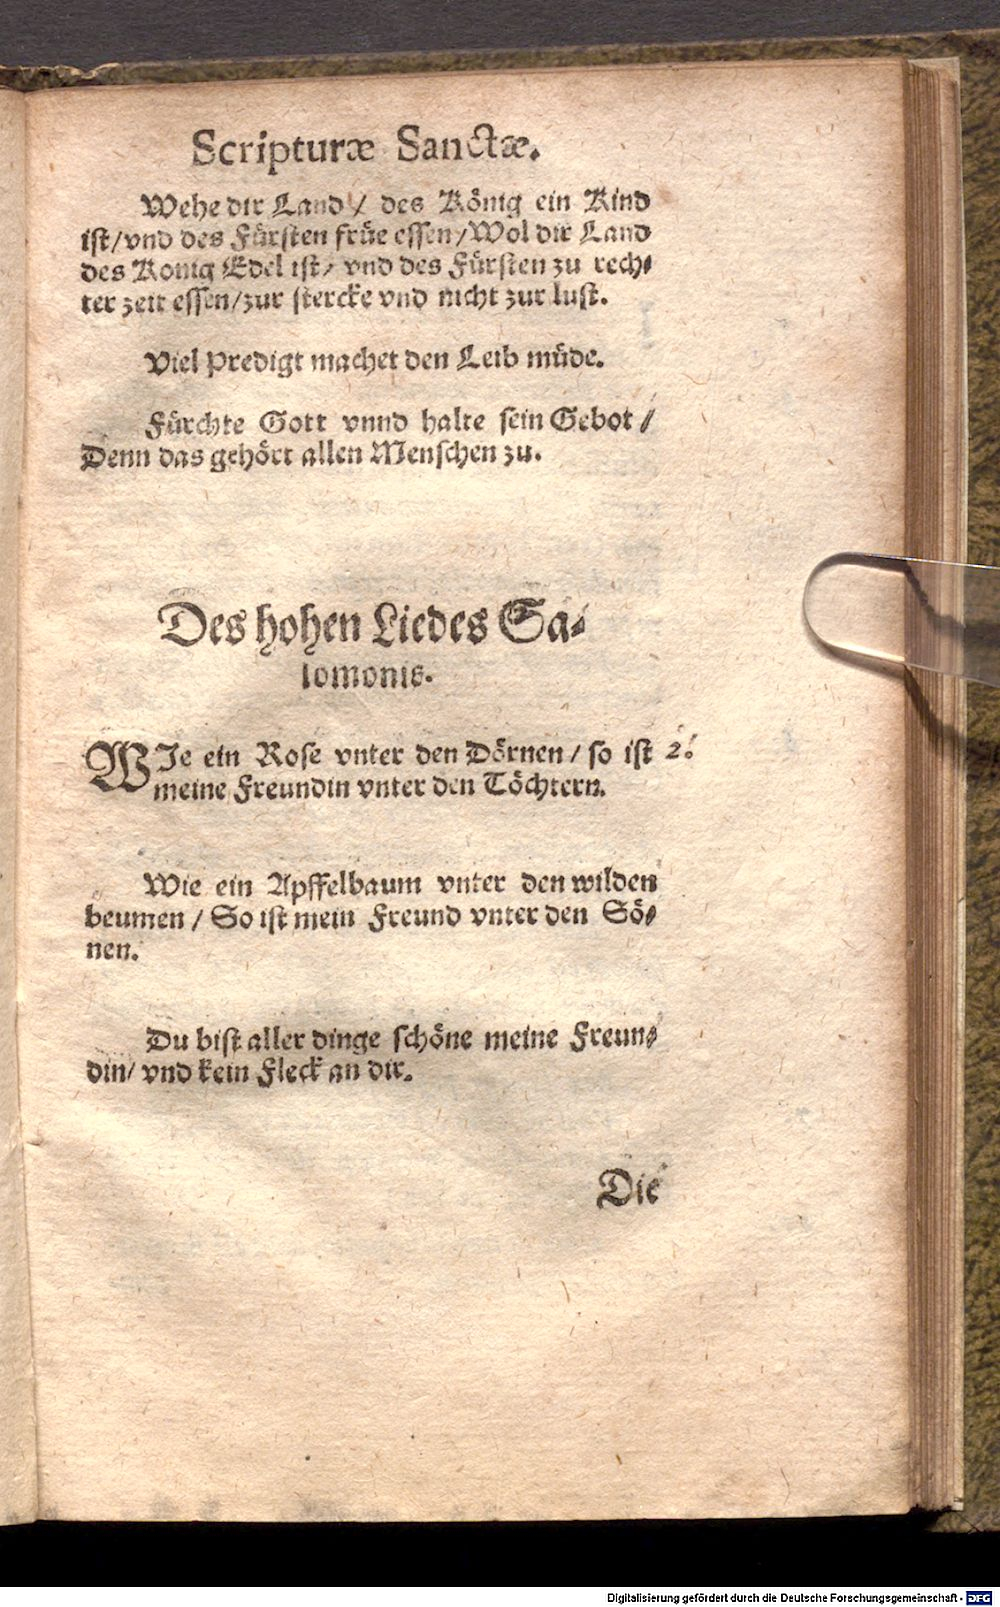 Scripturæ Sanctæ.
Wehe dir Land / des König ein Kind
ist/vnd des Fürsten früe essen/Wol dir Land
des Konig Edel ist/ vnd des Fürsten zu rech-
ter zeit essen/zur stercke vnd nicht zur lust.
Viel Predigt machet den Leib müde.
Fürchte Gott vnnd halte sein Gebot /
Denn das gehört allen Menschen zu.
Des hohen Liedes Sa-
lomonis.
WJe ein Rose vnter den Dörnen / so ist 2.
meine Freundin vnter den Töchtern.
Wie ein Apffelbaum vnter den wilden
beumen / So ist mein Freund vnter den Sö-
nen.
Du bist aller dinge schöne meine Freun-
din/ vnd kein Fleck an dir.
Die
Digitalisierung gefördert durch die Deutsche Forschungsgemeinschaft - DFG